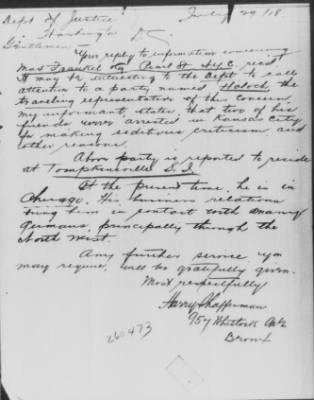 Dept of Justice July 29/18
Washington D.C.
Gentlemen
Your reply to information concerning
Max Frankel Pearl St N.Y.C. read
It may be interesting to the Dept to call
attention to a party named the
traveling representative of this concern,
my informant, states that two of his
friends were arrested in Kansas City
for making seditious criticism and
other reasons.
Above party is reported to reside
at Tompkinsville S.I.
At the present time, he is in
Chicago. His business relations
bring him in contact with many
Germans, principally through the
North West.
Any further service you
may require, will be gratefully given.
Most respectfully
Harry
957 Whitlock Ave
Bronx
260473